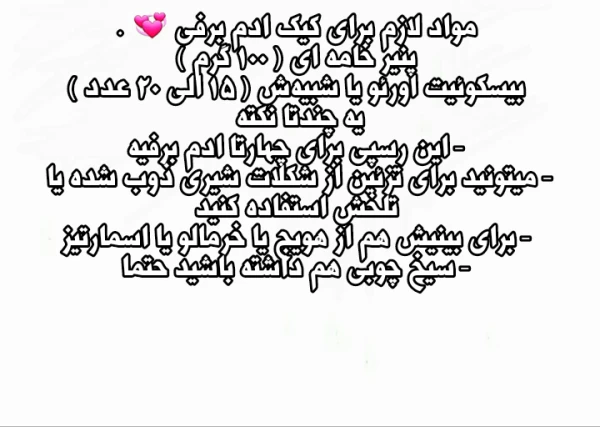 مواد لازم برای کیک ادم برفی 💞 .
پنیر خامه ای ( ۱۰۰ گرم )
بیسکوئیت اورئو یا شبیهش ( ۱۵ الی ۲۰ عدد )
یه چندتا نکته
- این رسپی برای چهارتا ادم برفیه
- میتونید برای تزئین از شکلات شیری ذوب شده یا
تلخش استفاده کنید
- برای بینیش هم از هویج یا خرمالو یا اسمارتیز
- سیخ چوبی هم داشته باشید حتما